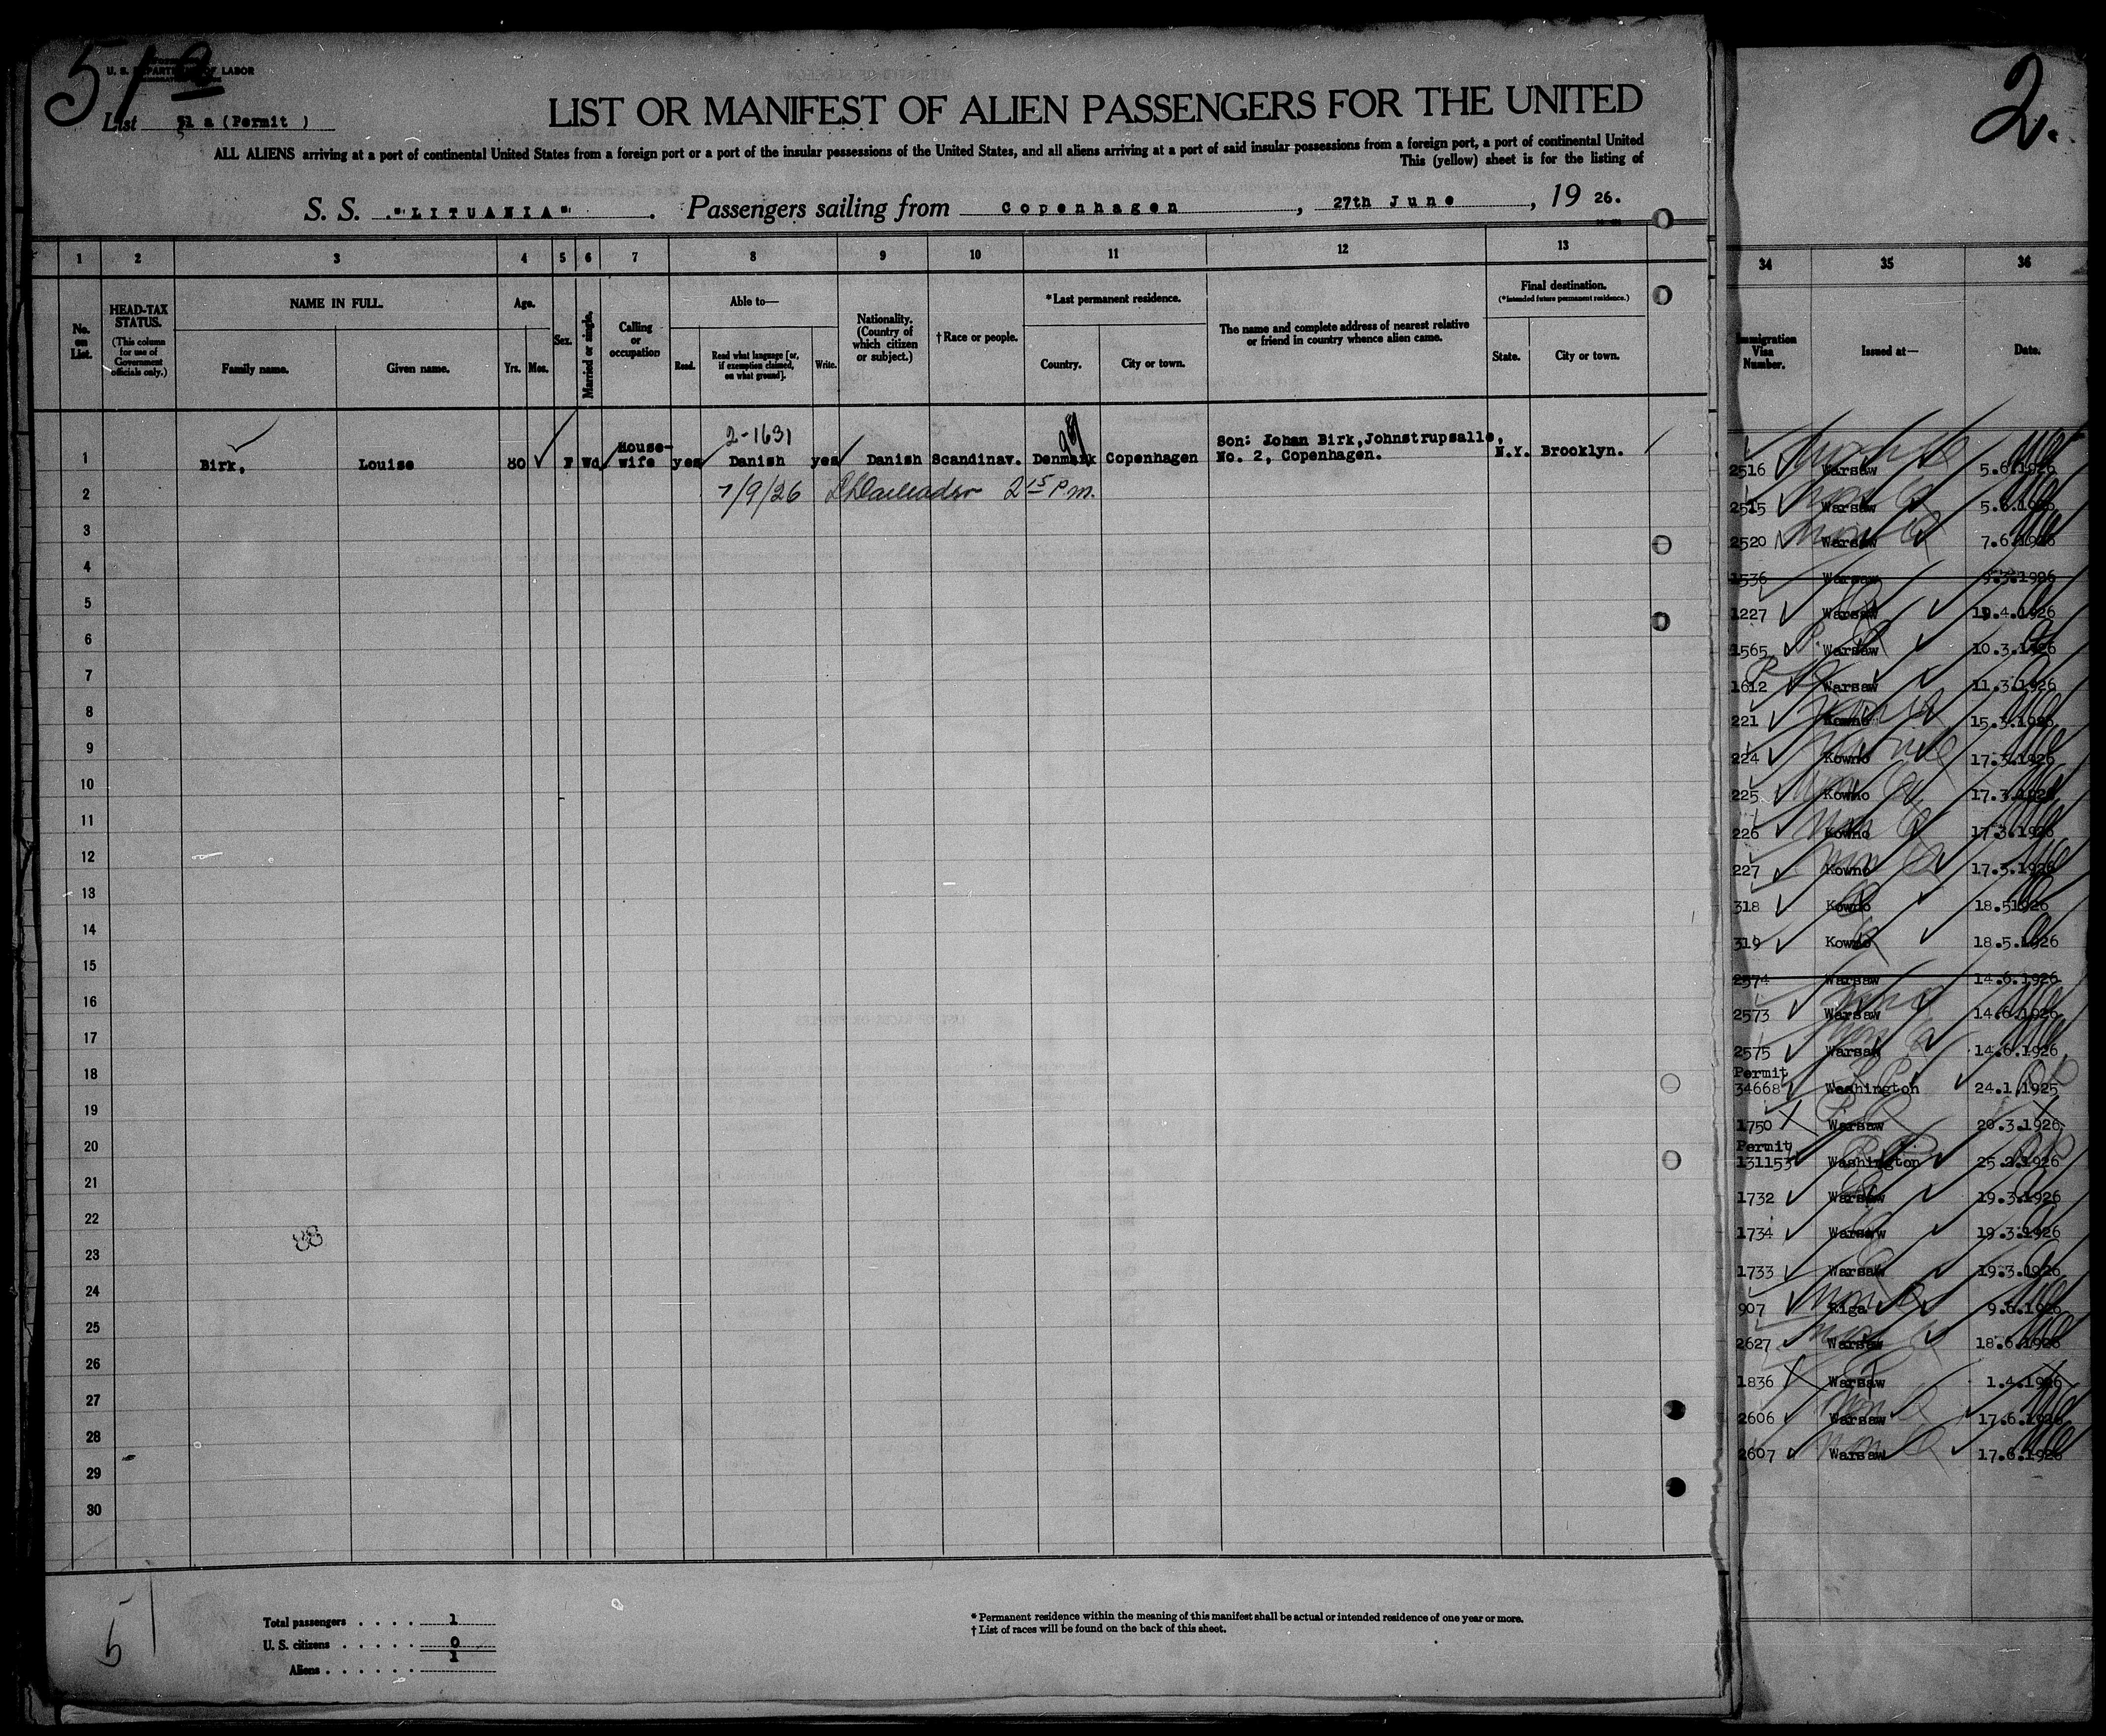 51 a
U. S. DEPARTMENT OF LABOR
List 51 a (Permit )
LIST OR MANIFEST OF ALIEN PASSENGERS FOR THE UNITED
ALL ALIENS arriving at a port of continental United States from a foreign port or a port of the insular possessions of the United States, and all aliens arriving at a port of said insular possessions from a foreign port, a port of continental United
This (yellow) sheet is for the listing of
S. S. "LITUANIA". Passengers sailing from Copenhagen, 27th June, 19 26.
1 2 3 4 5 6 7 8 9 10 11 12 13
No. on List.
HEAD-TAX STATUS.
(This column for use of Government officials only.)
NAME IN FULL.
Family name. Given name.
Age.
Yrs. Mos.
Sex.
Married or single.
Calling or occupation
Able to—
Read. Read what language [or, if exemption claimed, on what ground]. Write.
Nationality. (Country of which citizen or subject.)
†Race or people.
*Last permanent residence.
Country. City or town.
The name and complete address of nearest relative or friend in country whence alien came.
Final destination.
(*Intended future permanent residence.)
State. City or town.
2-1631
1 Birk, Louise 80 F Wd House-wife yes Danish yes Danish Scandinav. Denmark Copenhagen Son: Iohan Birk,Johnstrupsalle, No. 2, Copenhagen. N.Y. Brooklyn.
2 7/9/26 2 15 P.m.
3
4
5
6
7
8
9
10
11
12
13
14
15
16
17
18
19
20
21
22
23
24
25
26
27
28
29
30
88
51
Total passengers . . . . 1
U. S. citizens . . . . . 0
Aliens . . . . . . 1
* Permanent residence within the meaning of this manifest shall be actual or intended residence of one year or more.
† List of races will be found on the back of this sheet.
2.
34 35 36
Immigration Visa Number. Issued at— Date.
2516 Warsaw 5.6.1926
2515 Warsaw 5.6.1926
2520 Warsaw 7.6.1926
1536 Warsaw 9.3.1926
1227 Warsaw 19.4.1926
1565 Warsaw 10.3.1926
1612 Warsaw 11.3.1926
221 Kowno 15.3.1926
224 Kowno 17.3.1926
225 Kowno 17.3.1926
226 Kowno 17.3.1926
227 Kowno 17.3.1926
318 Kowno 18.51926
319 Kowno 18.5.1926
2574 Warsaw 14.6.1926
2573 Warsaw 14.6.1926
2575 Warsaw 14.6.1926
Permit
34668 Washington 24.1.1925
1750 Warsaw 20.3.1926
Permit
131153 Washington 25.2.1926
1732 Warsaw 19.3.1926
1734 Warsaw 19.3.1926
1733 Warsaw 19.3.1926
907 Riga 9.6.1926
2627 Warsaw 18.6.1926
1836 Warsaw 1.4.1926
2606 Warsaw 17.6.1926
2607 Warsaw 17.6.1926